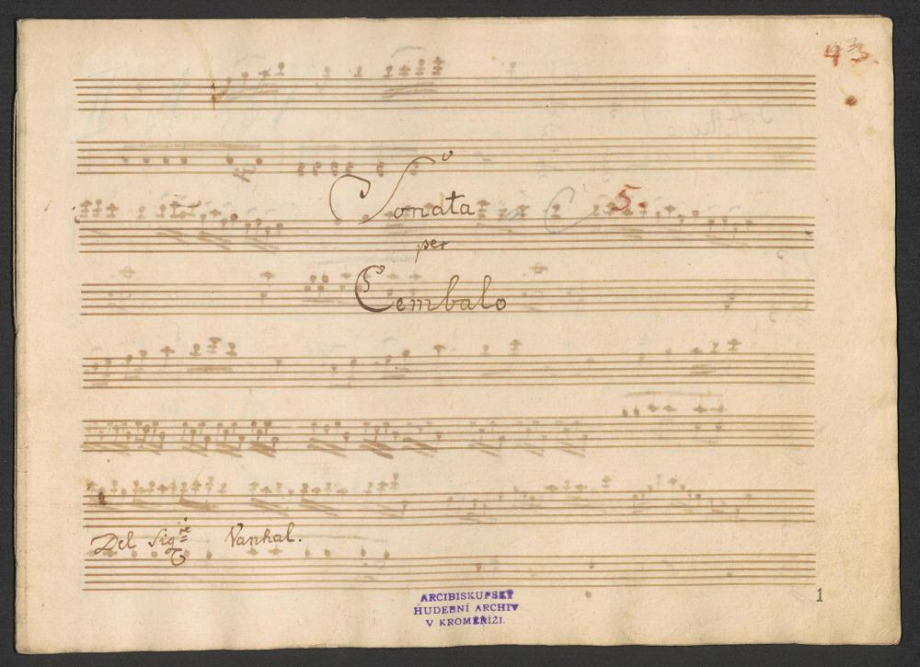 43.
Sonata 5.
per
Cembalo
Del Sig:re Vanhal.
ARCIBISKUPSKÝ
HUDEBNÍ ARCHIV
V KROMĚŘÍŽI.
1